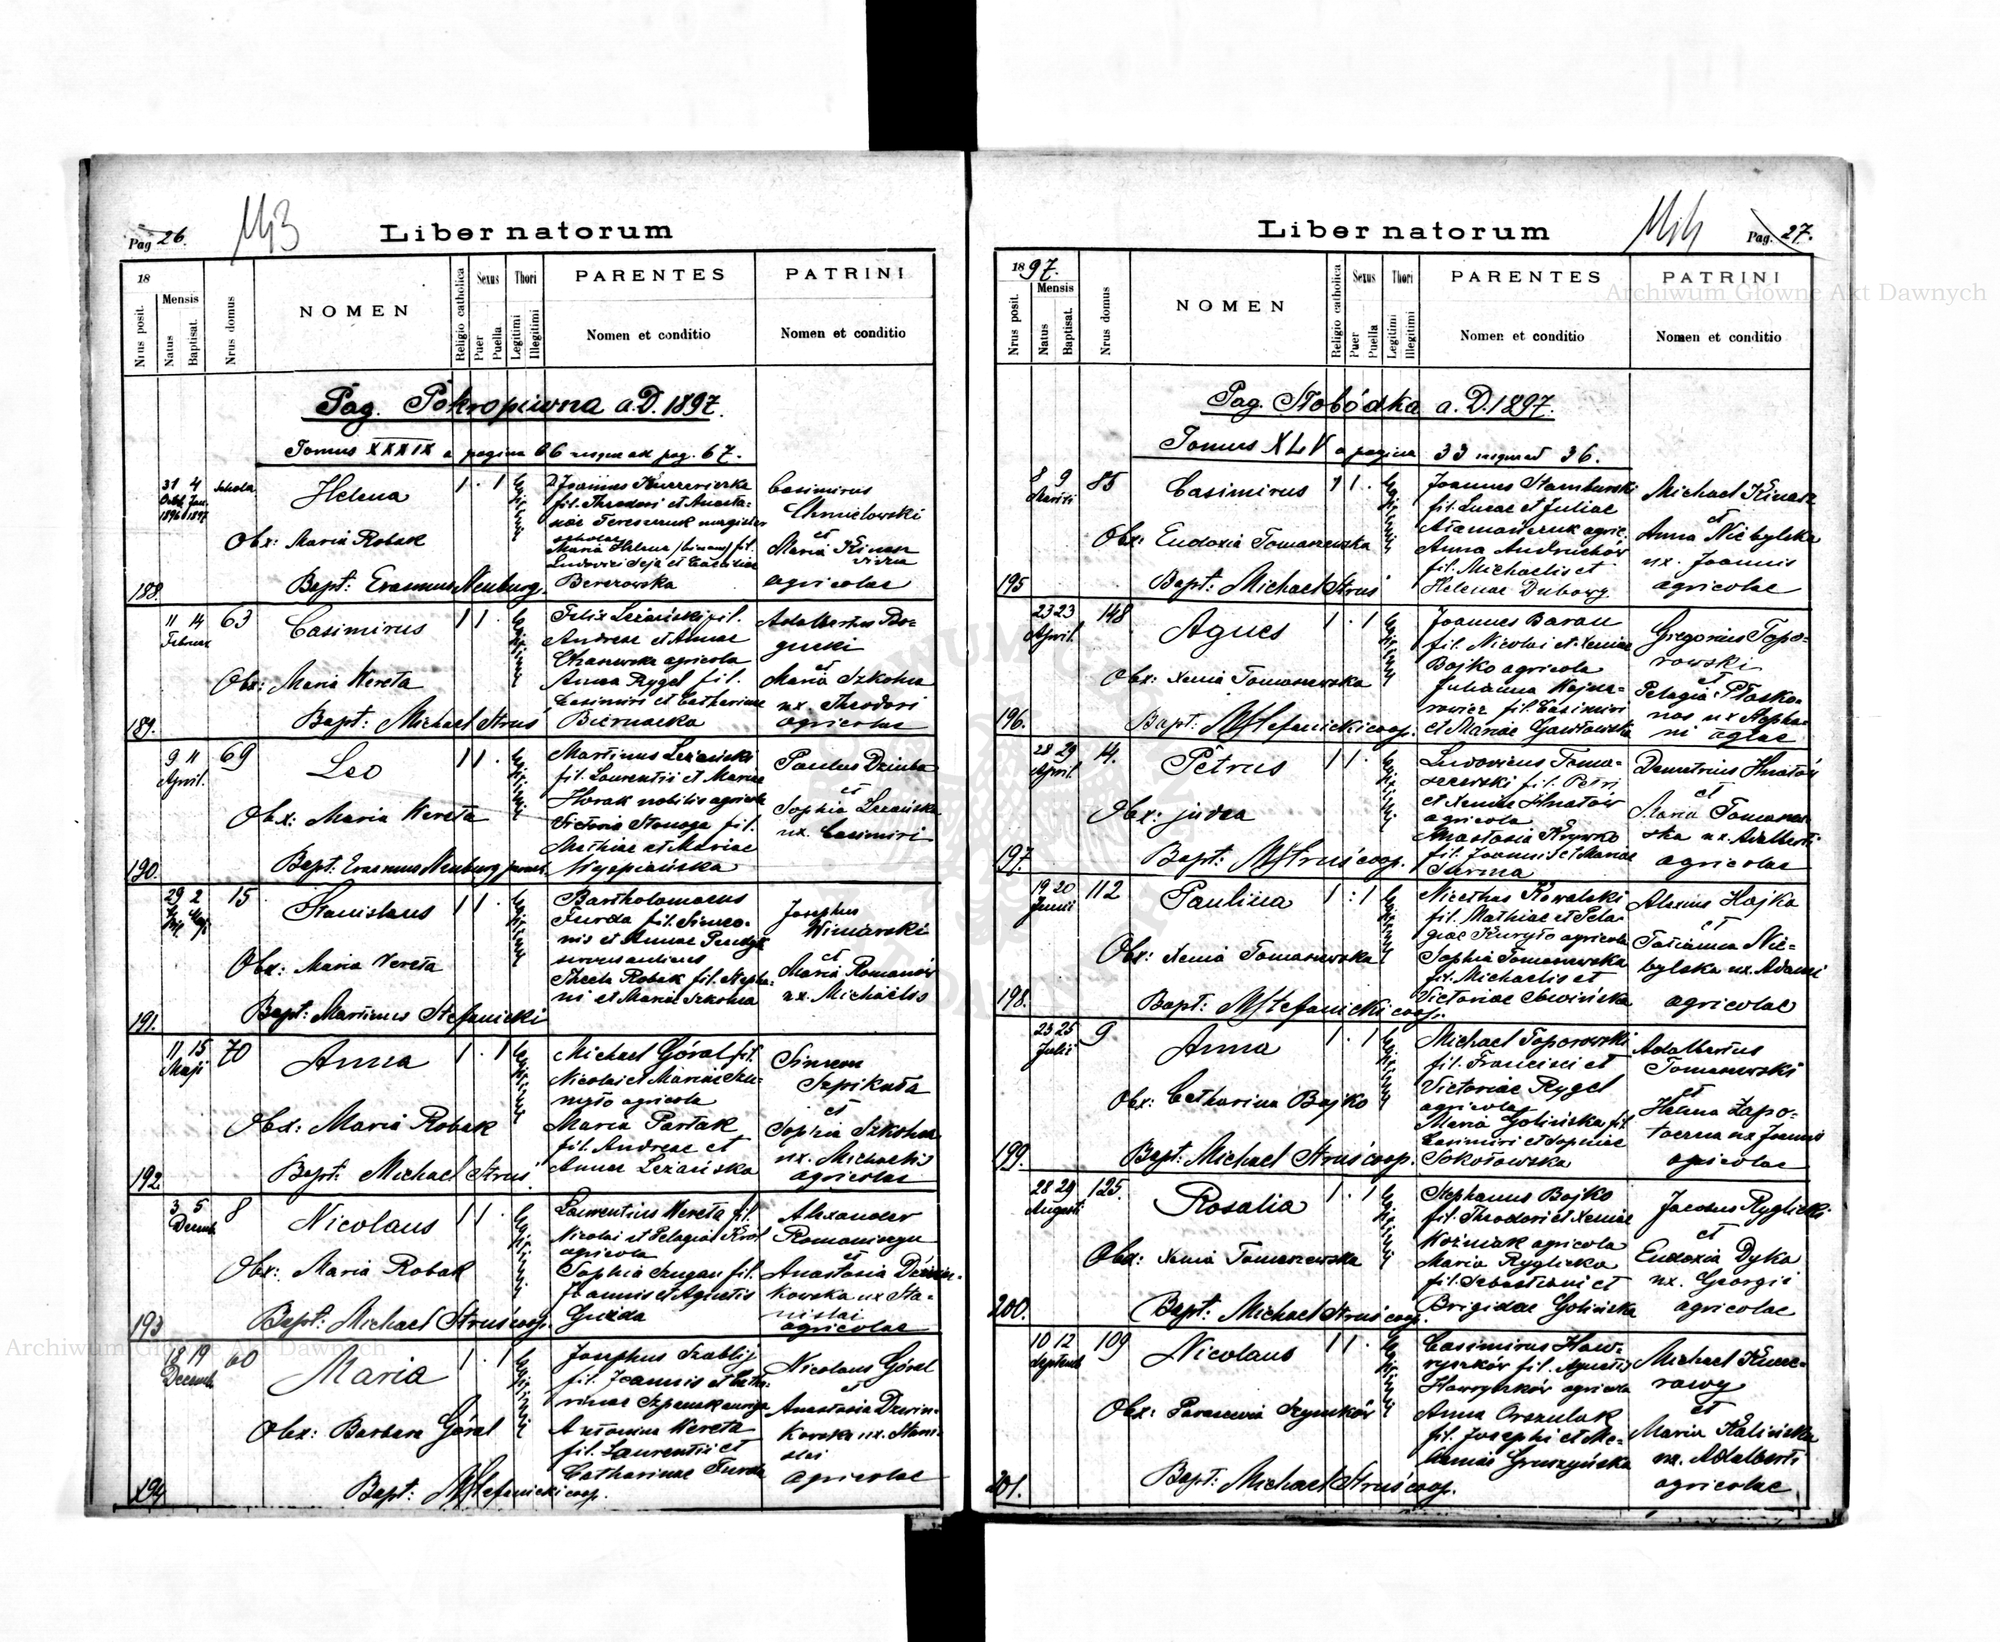 Pag 26.
Liber natorum
18
Nrus posit.
Mensis
Natus
Baptisat.
Nrus domus
NOMEN
Religio catholica
Sexus
Puer
Puella
Thori
Legitimi
Illegitimi
PARENTES
Nomen et conditio
PATRINI
Nomen et conditio
Pag. Pokropiwna a.D. 1897.
Tomus XXXIX a pagina 66 usque ad pag. 67.
188.
31 4
1896 1897
schola
Helena
Obx: Maria Robak
Bapt: Erasmus Neuburg.
fil. Theodori et Anasta-
Ludovici
Berezowska
Casimirus
Chmielowski
et
Maria
agricolae
189.
11 14
Februar
63
Casimirus
Obx: Maria Wereta
Bapt: Michael Struś
Felix Leżański fil.
Andreae et Annae
agricola
Anna Rygel fil.
Casimiri et Catharinae
Biernacka
Adalbertus Bo-
gucki
et
Maria Szkolna
ux. Theodori
agricolae
190.
9 11
April.
69
Leo
Obx: Maria Wereta
Bapt: Erasmus Neuburg
Martinus Leżański
fil. Laurentii et Mariae
Horak nobilis agricola
Victoria Stonoga fil.
Mathiae et Mariae
Wyspiańska
Paulus Dziuba
et
Sophia Leżańska
ux. Casimiri
191.
29 2
15
Stanislaus
Obx: Maria Wereta
Bapt: Martinus Stefanicki
Bartholomaeus
Furda fil. Simeo-
nis et Annae
Thecla Robak fil. Stepha-
ni et Maria Szkolna
Josephus
Winiarski
et
Maria Romanów
ux. Michaelis
192.
11 15
Maji
70
Anna
Obx: Maria Robak
Bapt: Michael Struś.
Michael Góral fil.
Nicolai et Mariae Szu-
myło agricola
Maria Partak
fil. Andreae et
Annae Leżańska
Simeon
Szpikuła
et
Sophia Szkolna
ux. Michaelis
agricolae
193
3 5
Decemb
8
Nicolaus
Obx: Maria Robak
Bapt: Michael Struś coop.
Laurentius Wereta fil.
Nicolai et Pelagiae Król
agricola
Sophia Szugan fil.
Joannis et Agnetis
Guzda
Alexander
et
Anastasia
kowska ux Sta-
nislai
agricolae
194
18 19
Decemb
60
Maria
Obx: Barbara Góral
Bapt: MStefanicki coop.
Josephus Szablij
fil. Joannis et Catha-
rinae
Antonina Wereta
fil. Laurentii et
Catharinae Furda
Nicolaus Góral
et
Anastasia Dzwin-
kowska ux. Stani-
slai
agricolae
Liber natorum
Pag. 27.
1897.
Nrus posit.
Mensis
Natus
Baptisat.
Nrus domus
NOMEN
Religio catholica
Sexus
Puer
Puella
Thori
Legitimi
Illegitimi
PARENTES
Nomen et conditio
PATRINI
Nomen et conditio
Pag. Słobódka a.D. 1897.
Tomus XLV a pagina 33 usque ad 36.
195
8 9
Martii
85
Casimirus
Obx: Eudoxia Tomaszewska
Bapt: Michael Struś
Joannes Stamburski
fil. Lucae et Juliae
Atamańczuk agric.
Anna Andruchów
fil. Michaelis et
Helenae Dubowy
Michael
et
Anna Niebylska
ux. Joannis
agricolae
196.
23 23
April.
148
Agnes
Obx: Xenia Tomaszewska
Bapt: MStefanicki coop.
Joannes Baran
fil. Nicolai et Xeniae
Bojko agricola
Julianna Wojna-
rowicz fil. Casimiri
et Mariae Gawłowska
Gregorius Topo-
rowski
et
Pelagia Płasko-
nos ux Stepha-
ni
197.
28 29
April.
14.
Petrus
Obx: judaa
Bapt: MStruś coop.
Ludovicus Toma-
szewski fil. Petri
et Xeniae Hnatów
agricola
Anastasia Krywko
fil. Joannis et Mariae
Sarma
Demetrius Hnatów
et
Maria Tomaszew-
ska ux. Adalberti
agricolae
198.
19 20
Junii
112
Paulina
Obx: Xenia Tomaszewska
Bapt: MStefanicki coop.
Nicethas Kowalski
fil. Mathiae et Pela-
giae Kuryło agricola
Sophia Tomaszewska
fil. Michaelis et
Victoriae Sowińska
Alexius Hajka
et
Tatianna Nie-
bylska ux. Adami
agricolae
199.
23 25
Julii
9
Anna
Obx: Catharina Bojko
Bapt: Michael Struś coop.
Michael Toporowski
fil. Francisci et
Victoriae Rygel
agricola
Maria Golińska fil.
Casimiri et Sophiae
Sokołowska
Adalbertus
Tomaszewski
et
Helena Łapo-
ux Joannis
agricolae
200.
28 29
Augusti
125.
Rosalia
Obx: Xenia Tomaszewska
Bapt: Michael Struś coop.
Stephanus Bojko
fil. Theodori et Xeniae
Woźniak agricola
Maria Ryglicka
fil. Sebastiani et
Brigidae Golińska
Jacobus Ryglicki
et
Eudoxia Dyka
ux. Georgii
agricolae
201.
10 12
Septemb
109
Nicolaus
Obx: Parascevia Szymków
Bapt: Michael Struś coop.
Casimirus Haw-
ryszków fil. Agnetis
Hawryszków agricola
Anna Orszulak
fil. Josephi et Me-
laniae Gruszyńska
Michael
et
Maria Kalińska
ux. Adalberti
agricolae
Archiwum Główne Akt Dawnych
Archiwum Główne Akt Dawnych